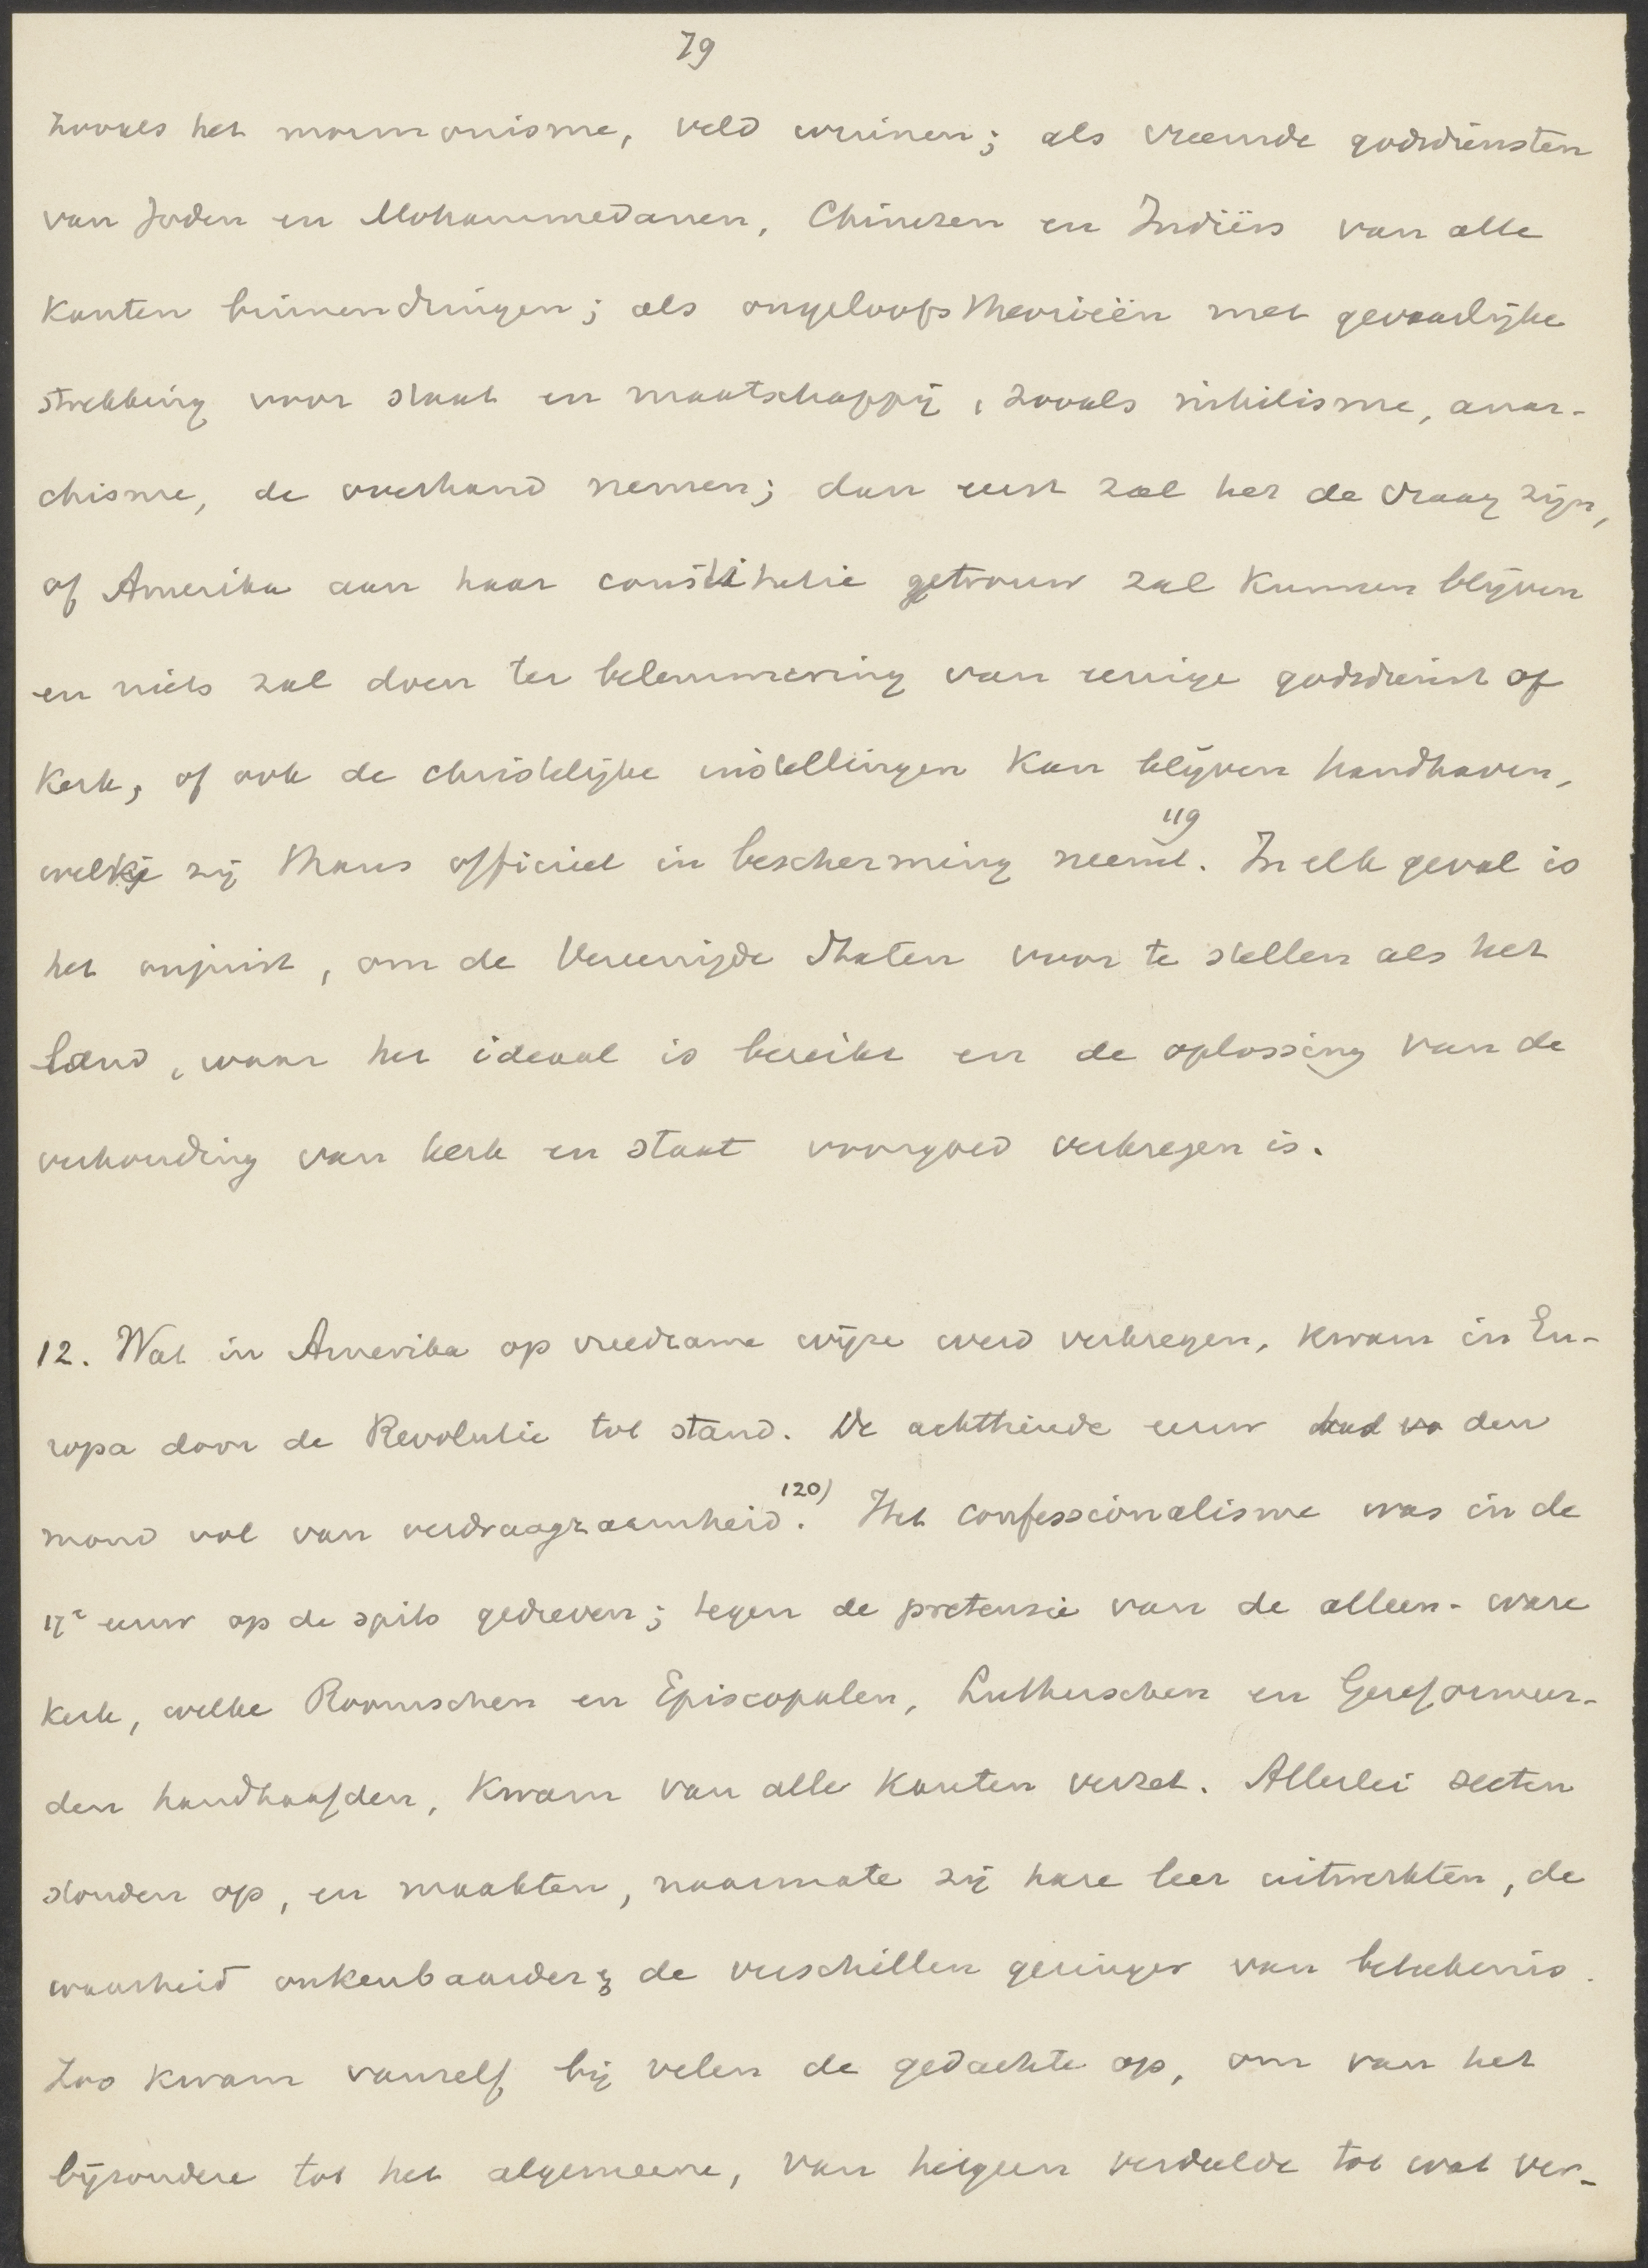 79
zooals het mormonisme, veld winnen; als vreemde godsdiensten
van Joden en Mohammedanen, Chinezen en Indiërs van alle
kanten binnendringen; als ongeloofstheorieën met gevaarlijke
strekking voor staat en maatschappij, zooals nihilisme, anar-
chisme, de overhand nemen; dan eerst zal het de vraag zijn,
of Amerika aan haar constitutie getrouw zal kunnen blijven
en niets zal doen ter belemmering van eenige godsdienst of
kerk, of ook de christelijke instellingen kan blijven handhaven,
welke zij thans officieel in bescherming neemt. 119 In elk geval is
het onjuist, om de Vereenigde Staten voor te stellen als het
land, waar het ideaal is bereikt en de oplossing van de
verhouding van kerk en staat voorgoed verkregen is.
12. Wat in Amerika op vreedzame wijze werd verkregen, kwam in Eu-
ropa door de Revolutie tot stand. De achttiende eeuw had den
mond vol van verdraagzaamheid. 120) Het confessionalisme was in de
17e eeuw op de spits gedreven; tegen de pretensie van de alleen-ware
kerk, welke Roomschen en Episcopalen, Lutherschen en Gereformeer-
den handhaafden, kwam van alle kanten verzet. Allerlei secten
stonden op, en maakten, naarmate zij hare leer uitwerkten, de
waarheid onkenbaarder, de verschillen geringer van beteekenis.
Zoo kwam vanzelf bij velen de gedachte op, om van het
bijzondere tot het algemeene, van hetgeen verdeelde tot wat ver-